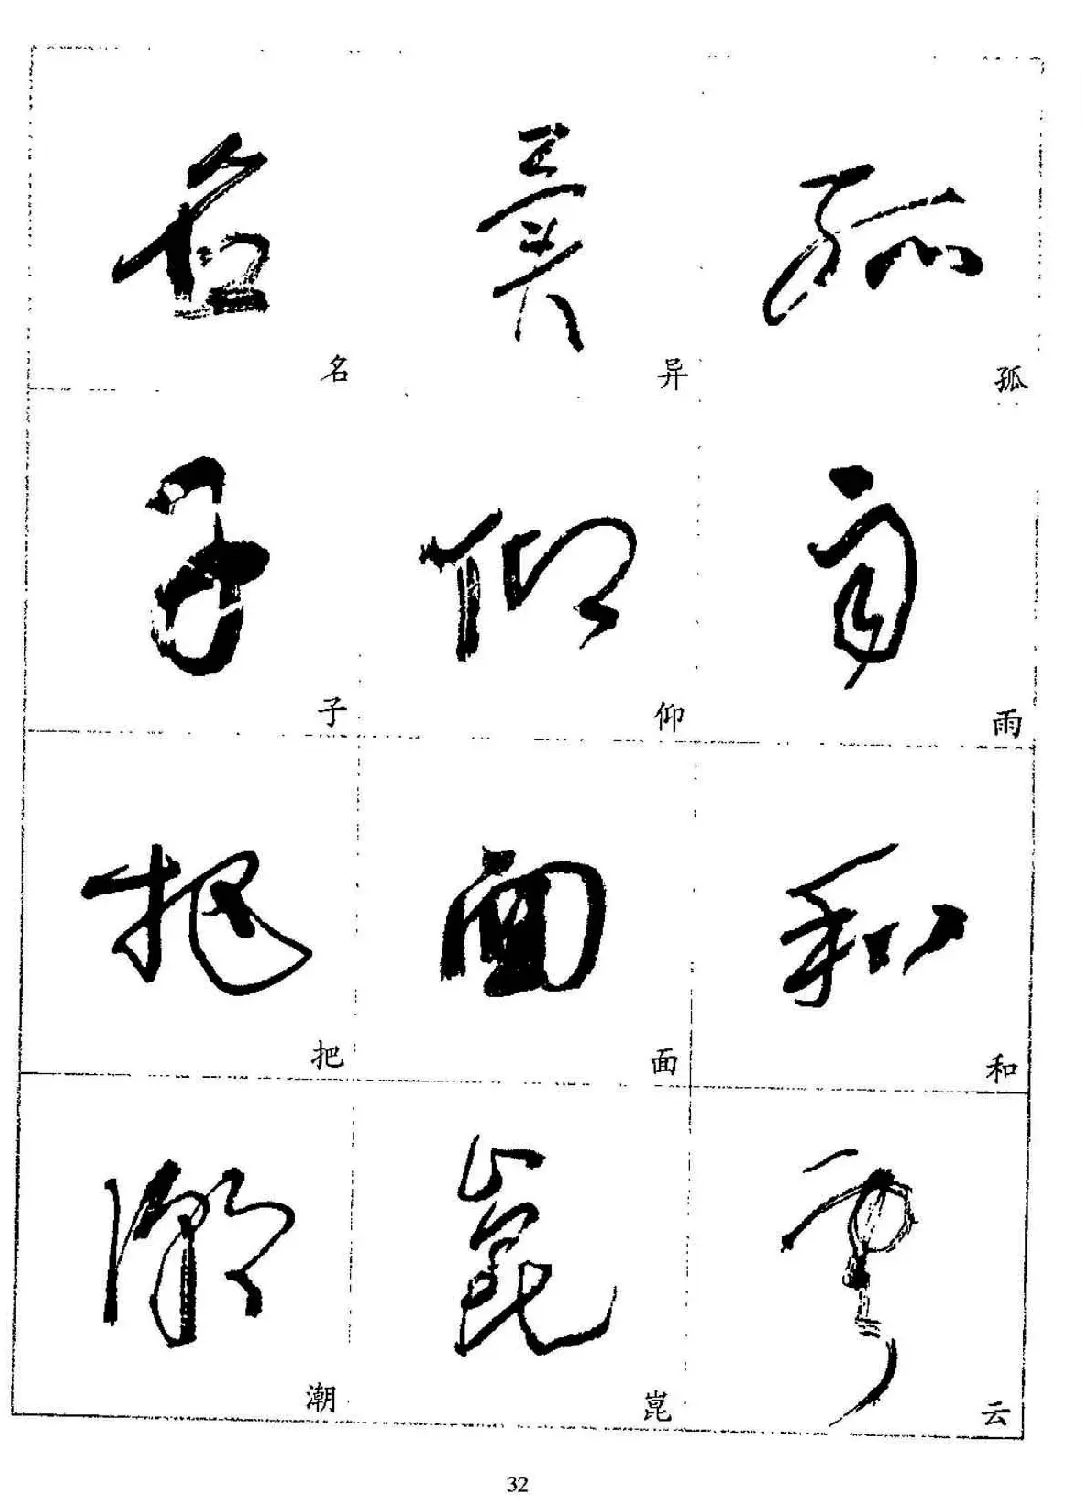 名 异 孤
子 仰 雨
把 面 和
潮 崑 云
32